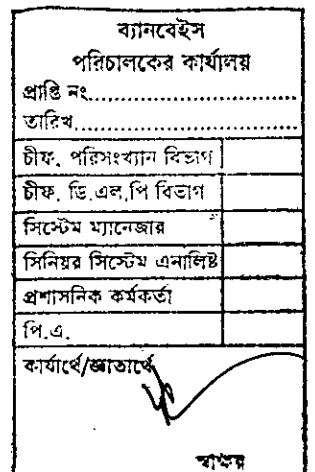 ব্যানবেইস
পরিচালকের কার্যালয়
প্রাপ্তি নং....................
তারিখ....................
চীফ, পরিসংখ্যান বিভাগ
চীফ, ডি.এল,পি বিভাগ
সিস্টেম ম্যানেজার
সিনিয়র সিস্টেম এনালিষ্ট
প্রশাসনিক কর্মকর্তা
পি.এ.
কার্যার্থে/জ্ঞাতার্থে
স্বাক্ষর